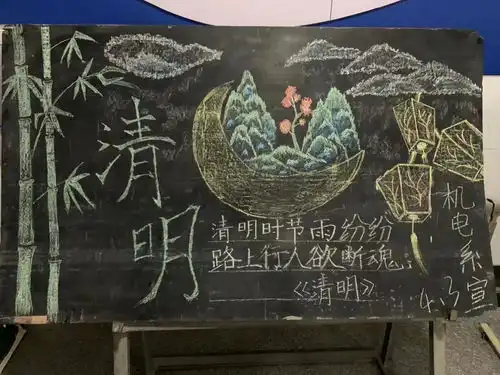 清明
清明时节雨纷纷
路上行人欲断魂。
《清明》
机电系宣
4.3